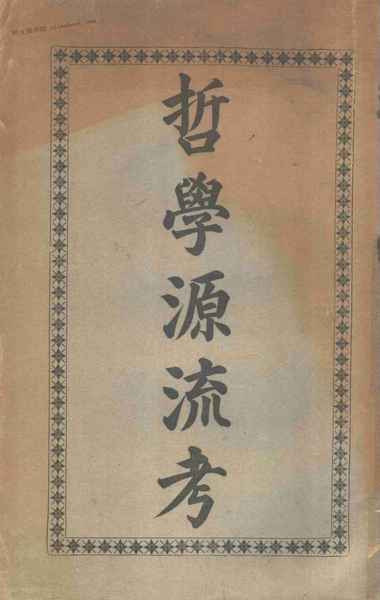 哲學源流考